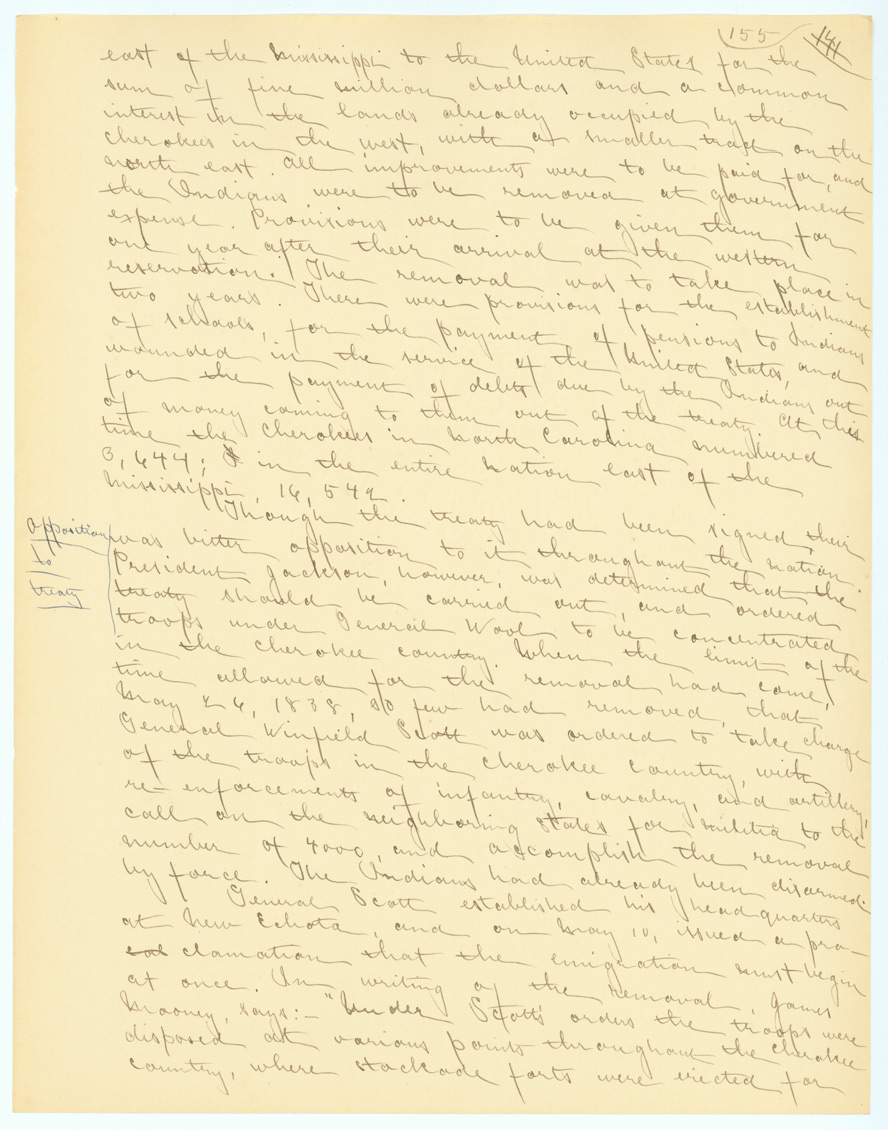 155
141
east of the Mississippi to the United States for the
sum of five million dollars and a common
interest in the lands already occupied by the
Cherokees in the west, with a smaller tract on the
north east. All improvements were to be paid for, and
the Indians were to be removed at government
expense. Provisions were to be given them for
one year after their arrival at the western
reservation. The removal was to take place in
two years. There were provisions for the establishment
of schools, for the payment of pensions to Indians
wounded in the service of the United States, and
for the payment of debts due by the Indians out
of money coming to them out of the treaty. At this
time the Cherokees in North Carolina numbered
3,644; & in the entire nation east of the
Mississippi, 16,542.
Though the treaty had been signed, their
opposition
to
treaty
was bitter opposition to it throughout the nation.
President Jackson, however, was determined that the
treaty should be carried out, and ordered
troops under General Wool to be concentrated
in the Cherokee country. When the limit of the
time allowed for the removal had come,
May 26, 1838, so few had removed, that
General Winfield Scott was ordered to take charge
of the troops in the Cherokee Country, with
re-enforcements of infantry, cavalry, and artillery,
call on the neighboring States for militia to the
number of 4000, and accomplish the removal
by force. The Indians had already been disarmed.
General Scott established his headquarters
at New Echota, and on May 10, issued a pro-
clamation that the emigration must begin
at once. In writing of the removal, James
Mooney, says:- "Under Scott's orders the troops were
disposed at various points throughout the Cherokee
Country, where stockade forts were erected for